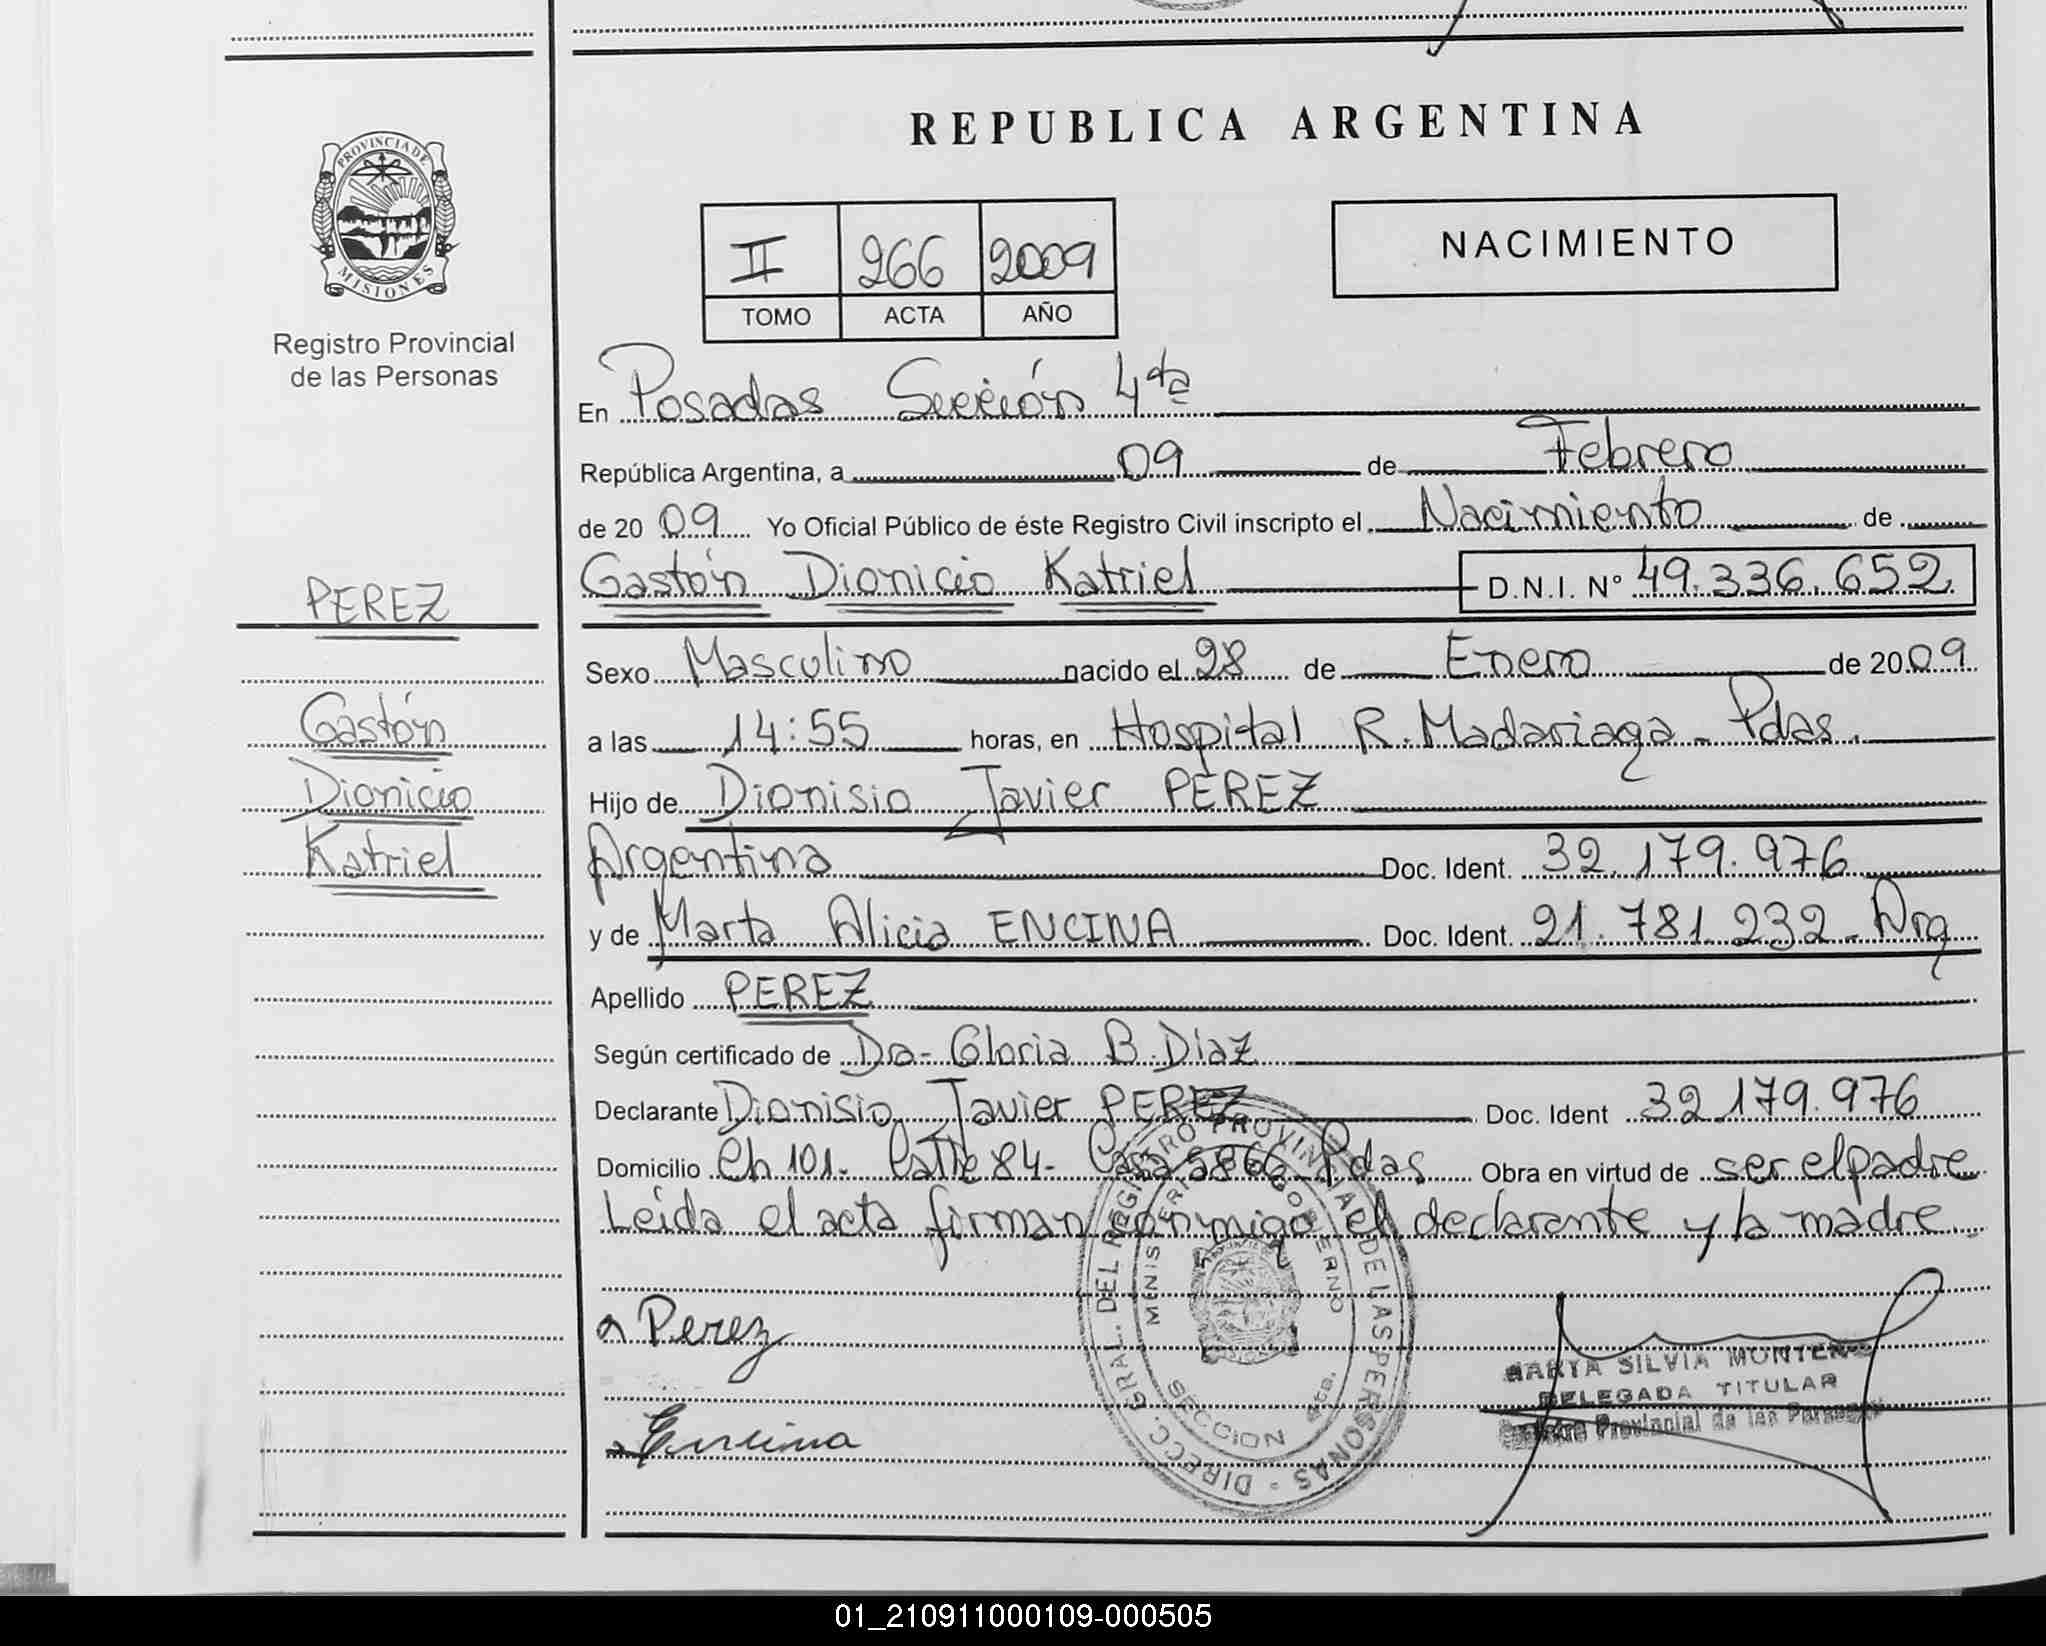 REPUBLICA ARGENTINA
PROVINCIA DE
MISIONES
Registro Provincial
de las Personas
II 266 2009
TOMO ACTA AÑO
NACIMIENTO
En Posadas Sección 4ta
República Argentina, a 09 de Febrero
de 20 09 Yo Oficial Público de éste Registro Civil inscripto el Nacimiento de
Gastón Dionicio Katriel D.N.I. Nº 49.336.652
PEREZ
Gastón
Dionicio
Katriel
Sexo Masculino nacido el 28 de Enero de 20 09
a las 14:55 horas, en Hospital R. Madariaga - Pdas.
Hijo de Dionisio Javier PEREZ
Argentina Doc. Ident. 32.179.976
y de Marta Alicia ENCINA Doc. Ident. 21.781.232 - Arg
Apellido PEREZ
Según certificado de Dra- Gloria B. Diaz
Declarante Dionisio Javier PEREZ Doc. Ident 32.179.976
Domicilio Ch 101- Calle 84- Casa 5866 Pdas Obra en virtud de ser el padre
Leída el acta firman conmigo el declarante y la madre.
Perez
Encina
DIRECC. GRAL. DEL REGISTRO PROVINCIAL DE LAS PERSONAS -
MINISTERIO DE GOBIERNO
SECCION 4ta.
SILVIA MONTERO
DELEGADA TITULAR
Registro Provincial de las Personas
01_210911000109-000505